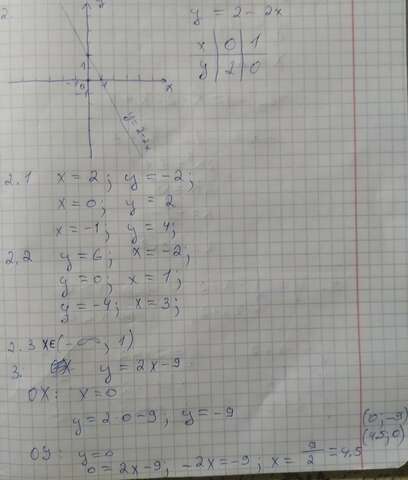 2.
y
y = 2 - 2x
x | 0 | 1
y | 2 | 0
1
-1 0 1 x
-1
y = 2-2x
2.1 x = 2; y = -2;
x = 0; y = 2
x = -1; y = 4;
2.2 y = 6; x = -2;
y = 0; x = 1;
y = -4; x = 3;
2.3 x∈(-∞; 1)
3. y = 2x-9
OX: x = 0
y = 2·0-9, y = -9
(0; -9)
(4,5; 0)
OY: y = 0
0 = 2x-9; -2x = -9; x = 9/2 = 4,5